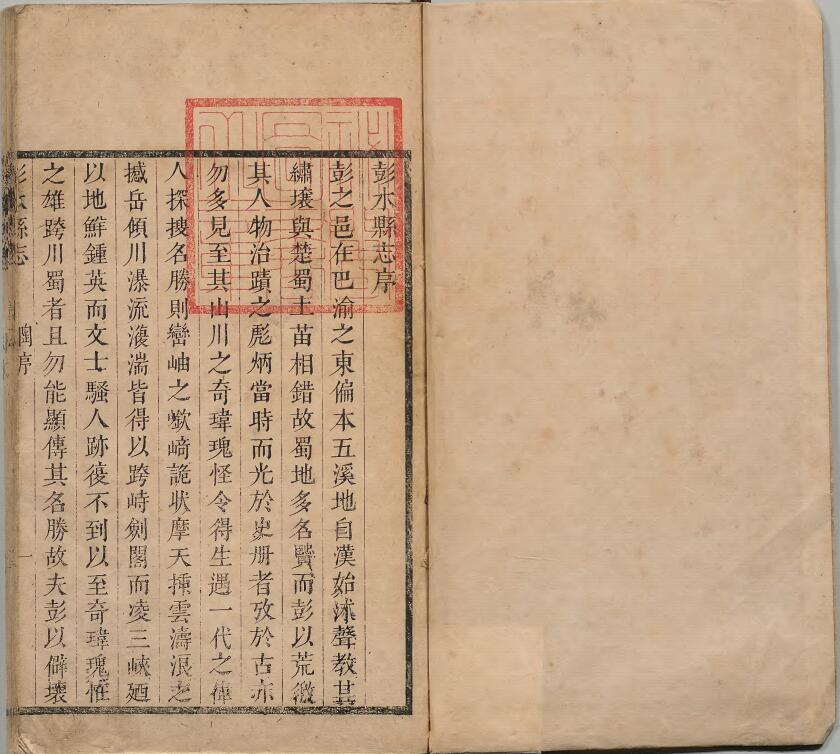 彭水縣志序
彭之邑在巴渝之東偏本五溪地自漢始沐聲教其
繡壤與楚蜀土苗相錯故蜀地多名賢而彭以荒徼
其人物治蹟之彪炳當時而光於史册者攷於古亦
勿多見至其山川之奇瑋瑰怪令得生遇一代之偉
人探搜名勝則巒岫之嶔崎詭状摩天揷雲濤浪之
撼岳傾川瀑流漩湍皆得以跨峙劍閣而凌三峽廼
以地鮮鍾英而文士騷人跡復不到以至奇瑋瑰恠
之雄跨川蜀者且勿能顯傳其名勝故夫彭以僻壤
彭水縣志 陶序 一